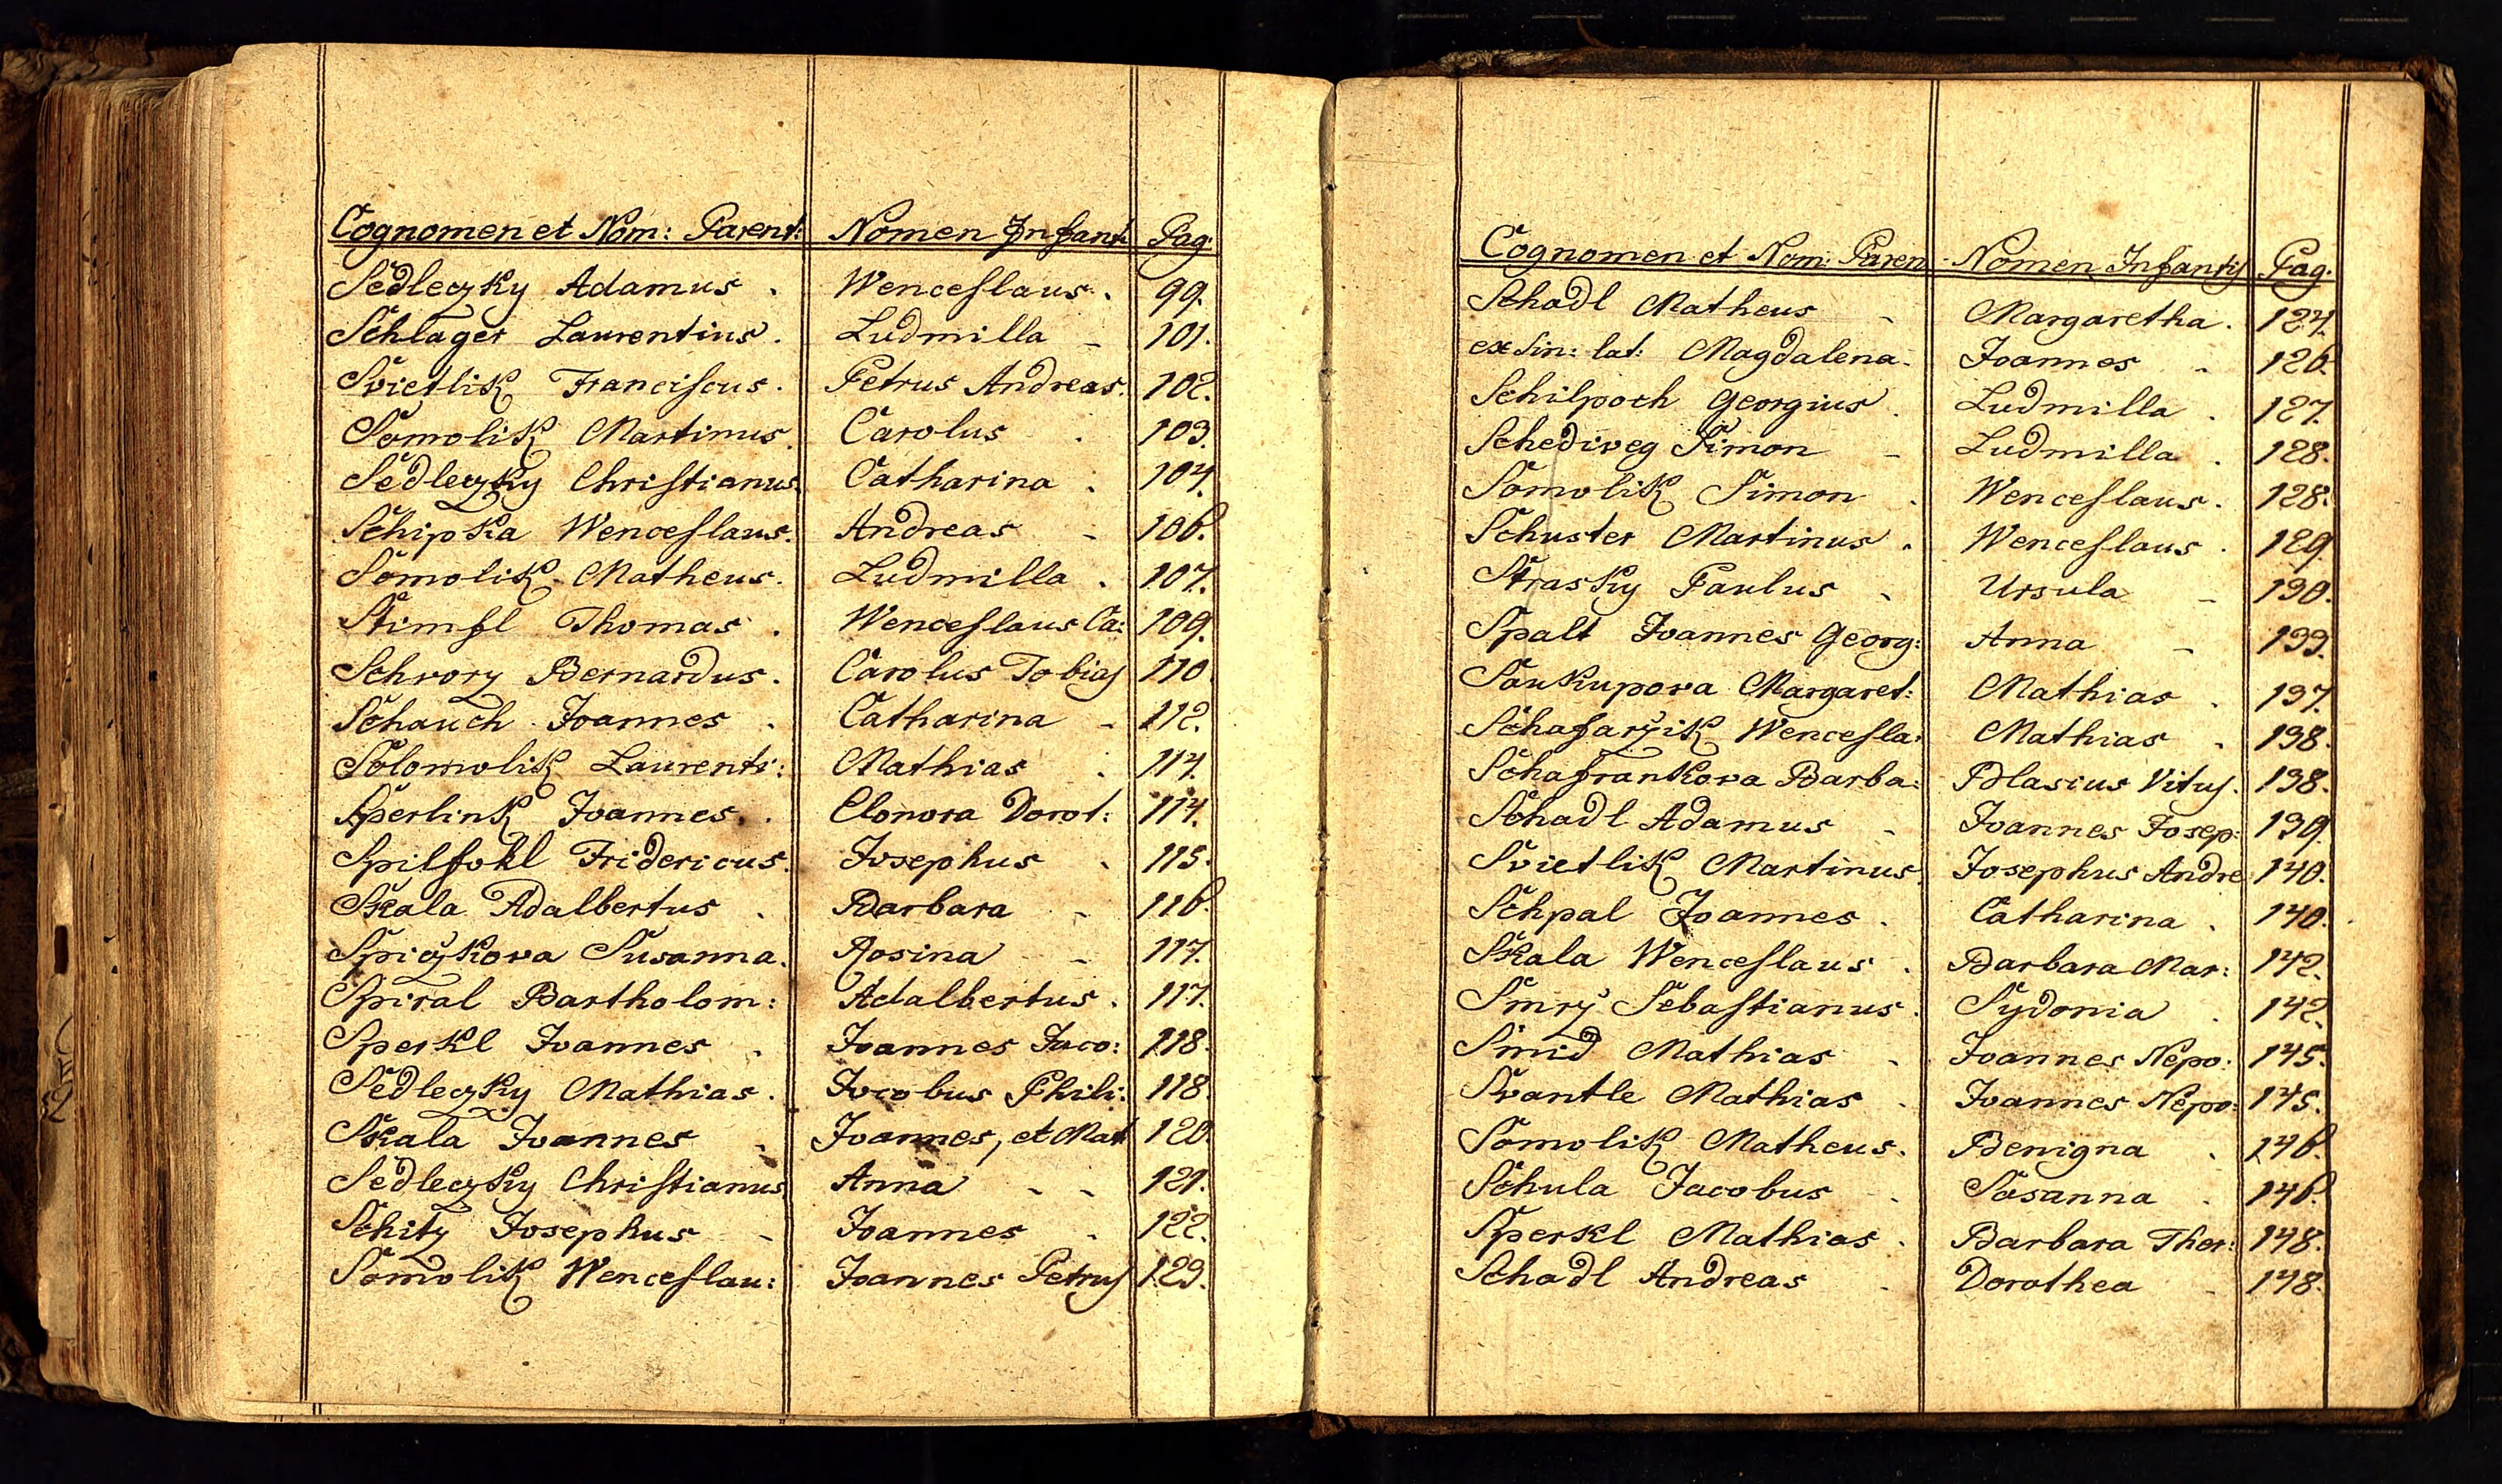 Cognomen et Nom: Parent: Nomen Infant: Pag:
Sedleczky Adamus . Wenceslaus . 99.
Schlager Laurentius . Ludmilla - 101.
Svietlik Franciscus . Petrus Andreas . 102.
Somolik Martinus . Carolus . 103.
Sedleczky Christianus . Catharina . 104.
Schipka Wenceslaus . Andreas - 106.
Somolik Matheus . Ludmilla . 107.
Stimfl Thomas . Wenceslaus Ca: 109.
Schvorz Bernardus . Carolus Tobias 110.
Schauch Joannes . Catharina - 112.
Solomolik Laurenti: Mathias . 114.
Sperlink Joannes . Elonora Dorot: 114.
Spilfokl Fridericus . Josephus . 115.
Skala Adalbertus . Barbara - 116.
Spiczkova Susanna . Rosina - 117.
Spiral Bartholom: Adalbertus . 117.
Sperkl Joannes . Joannes Jaco: 118.
Sedleczky Mathias . Jacobus Phili: 118.
Skala Joannes . Joannes, et Mat 120.
Sedleczky Christianus Anna - - 121.
Schitz Josephus - Joannes . 122.
Somolik Wenceslau: Joannes Petrus 123.
Cognomen et Nom: Paren Nomen Infantis Pag:
Schadl Matheus - Margaretha . 124.
ex sin: lat: Magdalena . Joannes - 126.
Schilpoch Georgius . Ludmilla . 127.
Schediveg Simon - Ludmilla . 128.
Somolik Simon . Wenceslaus . 128.
Schuster Martinus . Wenceslaus . 129.
Strasky Paulus - Ursula - 130.
Spalt Joannes Georg: Anna - 133.
Saukupova Margaret: Mathias . 137.
Schafarzik Wencesla: Mathias . 138.
Schafrankova Barba: Blasius Vitus . 138.
Schadl Adamus - Joannes Josep: 139.
Svietlik Martinus . Josephus Andre 140.
Schpal Joannes . Catharina . 140.
Skala Wenceslaus . Barbara Mar: 142.
Smrz Sebastianus . Sydonia . 142.
Smid Mathias - Joannes Nepo: 145.
Svantle Mathias . Joannes Nepo: 145.
Somolik Matheus . Benigna . 146.
Schula Jacobus - Sosanna . 146.
Sperkl Mathias . Barbara Ther: 148.
Schadl Andreas . Dorothea - 148.